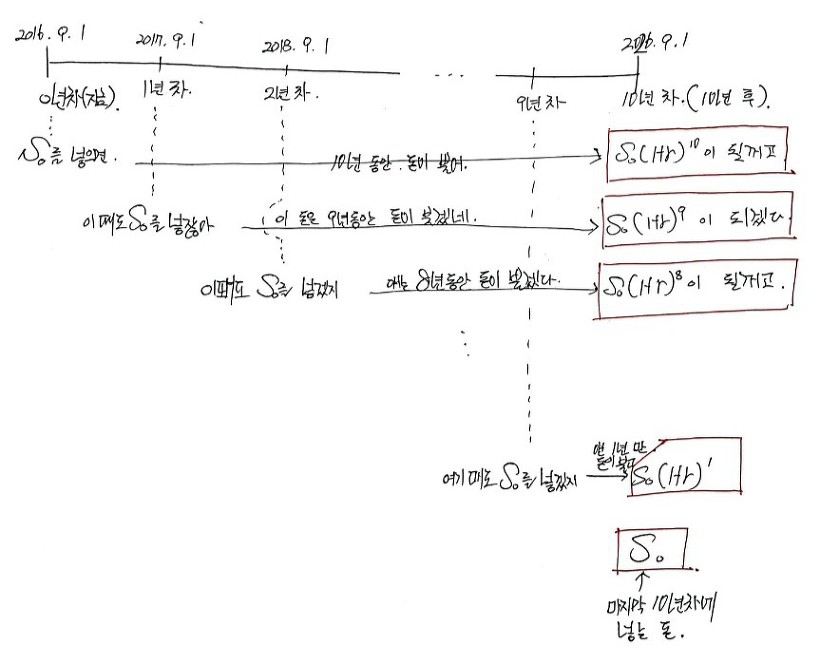 2016. 9. 1
2017. 9. 1
2018. 9. 1
2026. 9. 1
0년차(지금).
1년차.
2년차.
...
9년차
10년차. (10년 후).
S₀를 넣으면.
10년 동안. 돈이 불어.
S₀(1+r)¹⁰이 될꺼고
이때도 S₀를 넣잖아
이 돈은 9년동안 돈이 붙겠네.
S₀(1+r)⁹이 되겠다
이때도 S₀를 넣겠지
얘는 8년동안 돈이 붙겠다.
S₀(1+r)⁸이 될꺼고.
여기때도 S₀를 넣겠지
1년 만
돈이 붙고
S₀(1+r)¹
S₀
마지막 10년차에
넣는 돈.